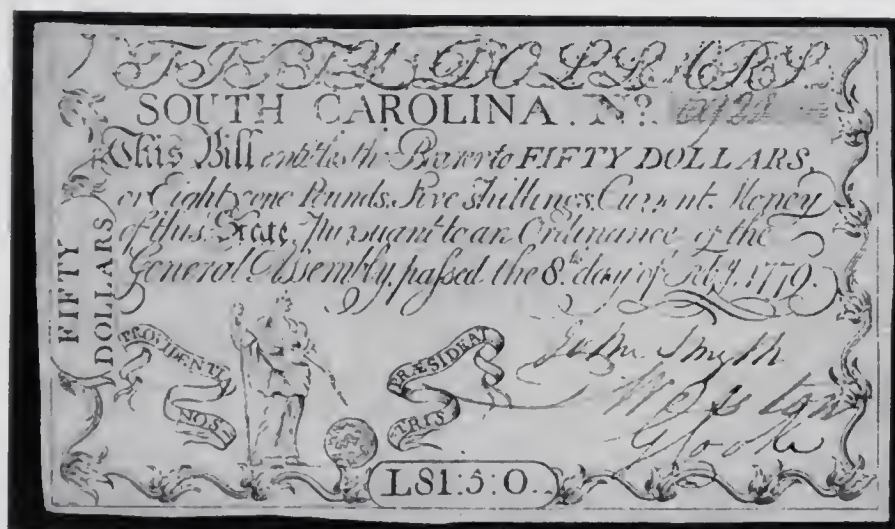 FIFTY DOLLARS
SOUTH CAROLINA. Nº
This Bill entitles the Bearer to FIFTY DOLLARS,
or Eighty one Pounds, Five Shillings, Current Money
of this State, Pursuant to an Ordinance of the
General Assembly, passed the 8.th day of Feby. 1779.
FIFTY
DOLLARS
PROVIDENTIA
NOS
PRÆSIDEAT
TRIS
John Smyth
L81:5:0.